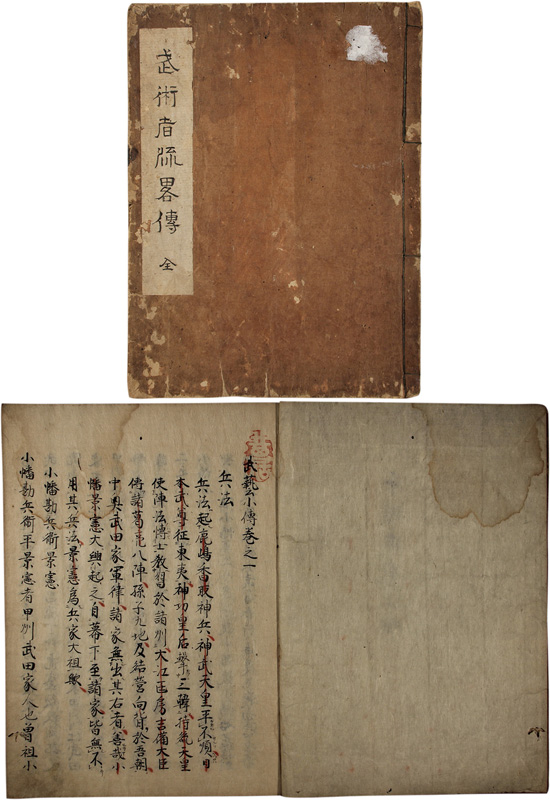 武術者流畧傳 全
武藝小傳巻之一
兵法
兵法起鹿嶋香取神兵神武天皇平不順日
本武尊征東夷神功皇后撃三韓持統天皇
使陣法博士教習於諸州大江匡房吉備大臣
傳諸葛亮八陣孫子九地及結営向背於吾朝
中興武田家軍律諸家無出其右者善哉小
幡景憲大興起之自幕下至諸家皆無不
用其兵法景憲爲兵家大祖歟
小幡勘兵衛景憲
小幡勘兵衛平景憲者甲州武田家人也曽祖小